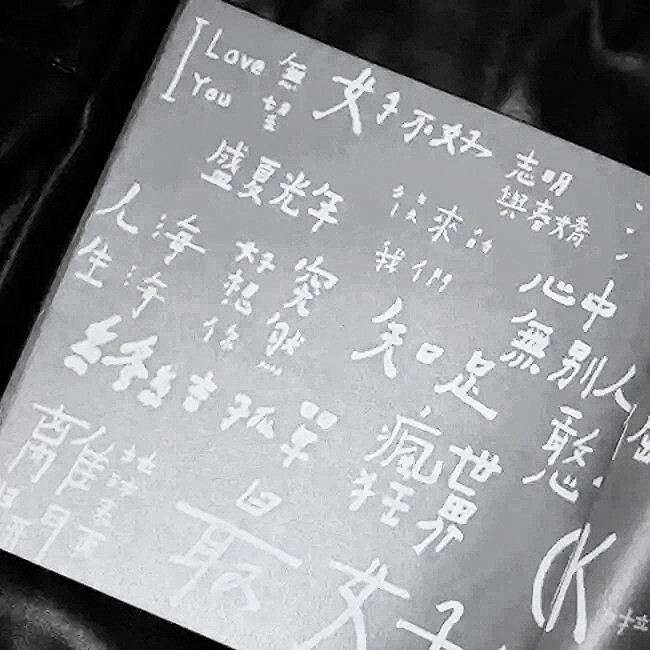 I Love You 無望
好不好
志明與春嬌
盛夏光年
後來的我們
人生海海
好想你
突然
心中無別人
知足
終結孤單
憨人
瘋狂世界
離開地球表面
最
好
OK